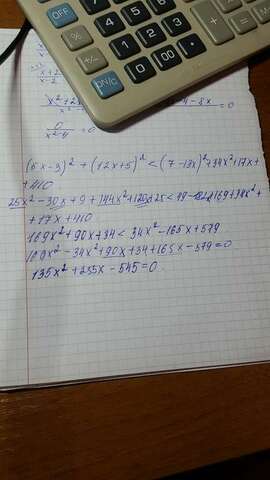 OFF
ON/C
%
7
4
1
0
00
8
5
2
000
x + 2
x - 2
x² + 2x
4 - 8x
= 0
0
x² - 4
= 0
(5x - 3)² + (12x + 5)² < (7 - 13x)² + 34x² + 17x +
+ 410
25x² - 30x + 9 + 144x² + 120x + 25 < 49 - 182x + 169 + 34x² +
+ 17x + 410
169x² + 90x + 34 < 34x² - 165x + 579
169x² - 34x² + 90x + 34 + 165x - 579 = 0
135x² + 235x - 545 = 0